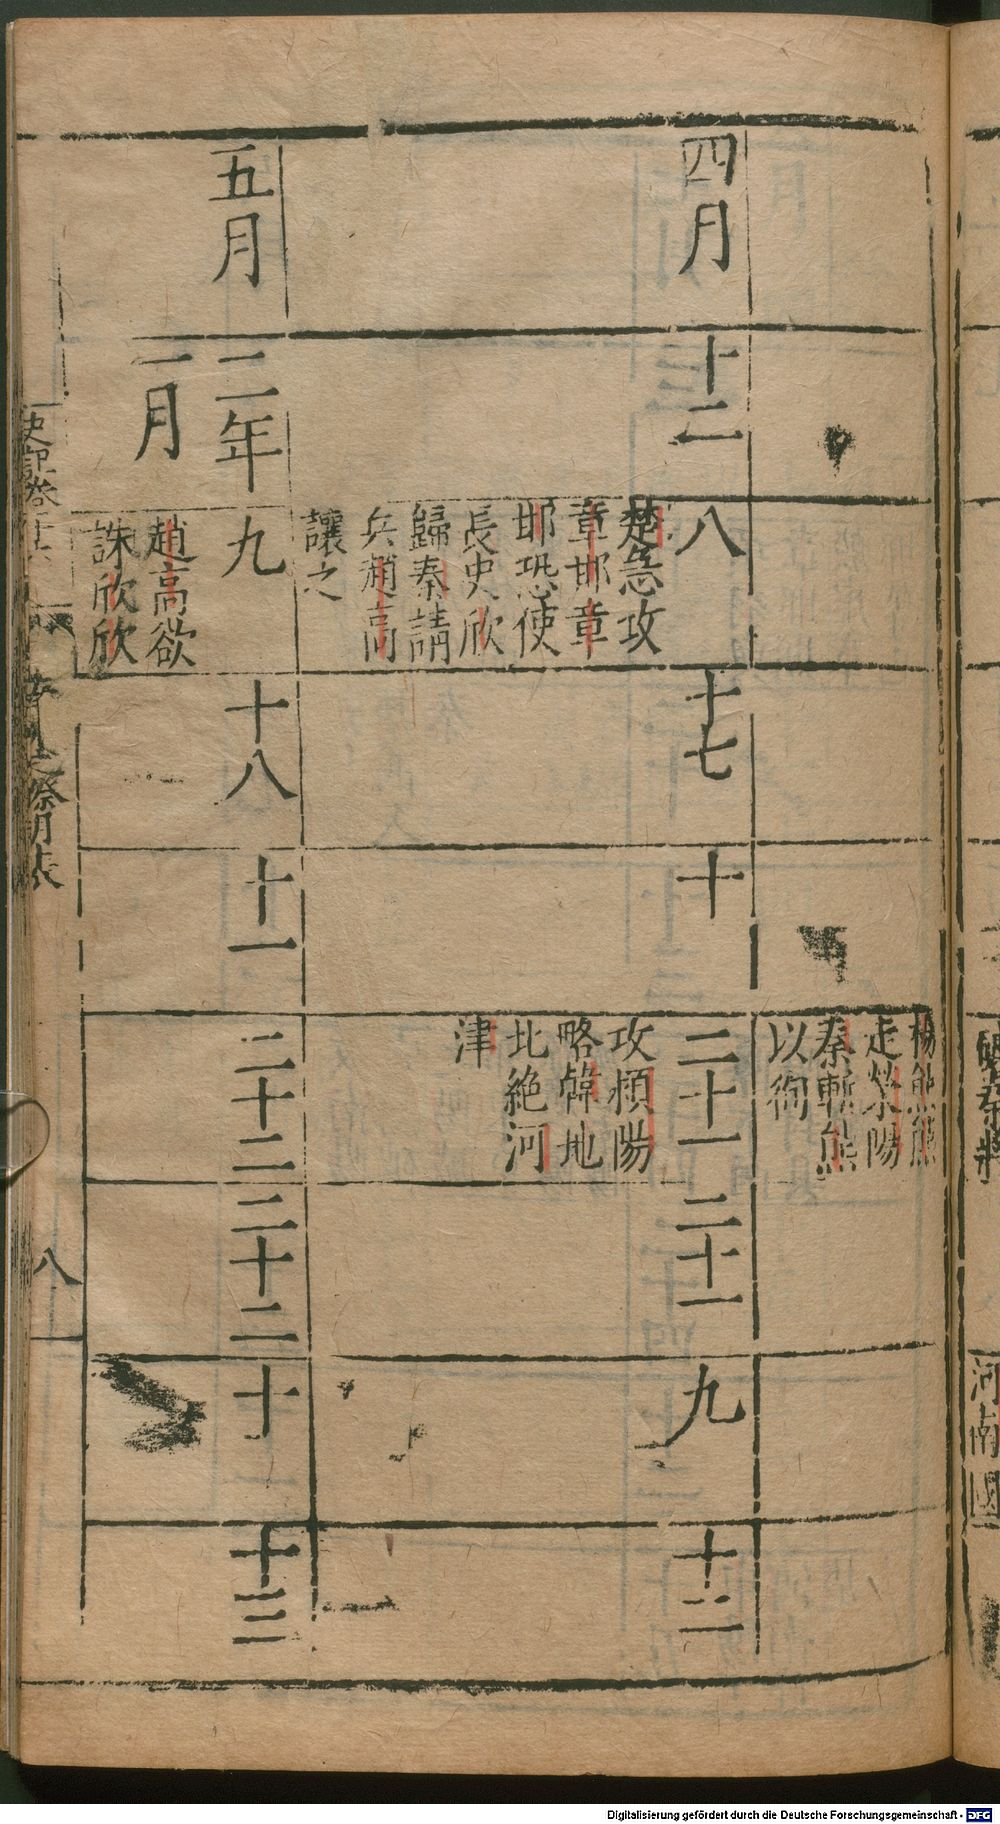 楊熊熊
走滎陽
秦斬熊
以徇
四月
十二
八
楚急攻
章邯章
邯恐使
長史欣
歸秦請
兵趙高
讓之
十七
十
二十一
攻潁陽
略韓地
北絶河
津
二十一
九
十二
五月
二年
一月
九
趙高欲
誅欣欣
十八
十一
二十二
二十二
十
十三
八
河南國
Digitalisierung gefördert durch die Deutsche Forschungsgemeinschaft - DFG